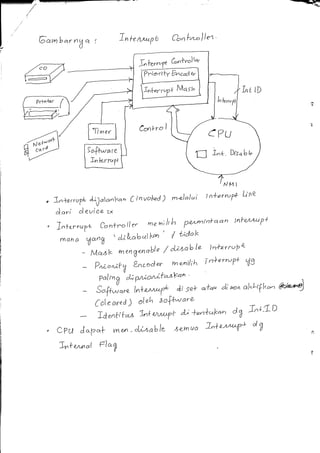 Gambarnya : Interrupt Controller
CD
Interrupt Controller
Priority Encoder
Interrupt Mask
Int ID
Interrupt
Printer
Network Card
Timer
Control
CPU
Software
Interrupt
Int. Disable
NMI
• Interrupt dijalankan (invoked) melalui interrupt line
dari device xx
• Interrupt Controller memilih permintaan interrupt
mana yang 'dikabulkan' / tidak
- Mask mengenable / disable Interrupt
- Priority Encoder memilih interrupt yg
paling diprioritaskan
- Software Interrupt di set atau di non aktifkan
(cleared) oleh software
- Identitas Interrupt di tentukan dg Int.ID
• CPU dapat men-disable semua Interrupt dg
Internal Flag